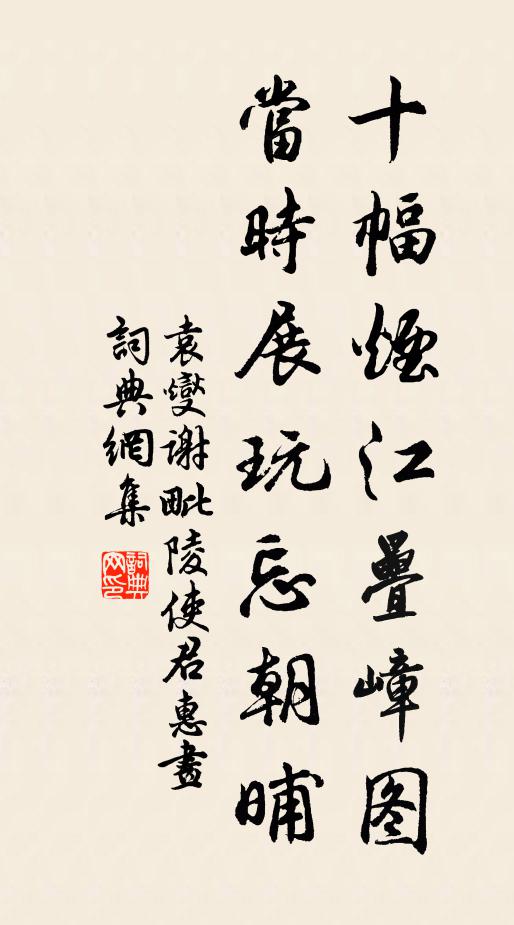 十幅煙江疊嶂图
當時展玩忘朝晡
袁燮謝毗陵使君惠畫
詞典網集
詞典
网印